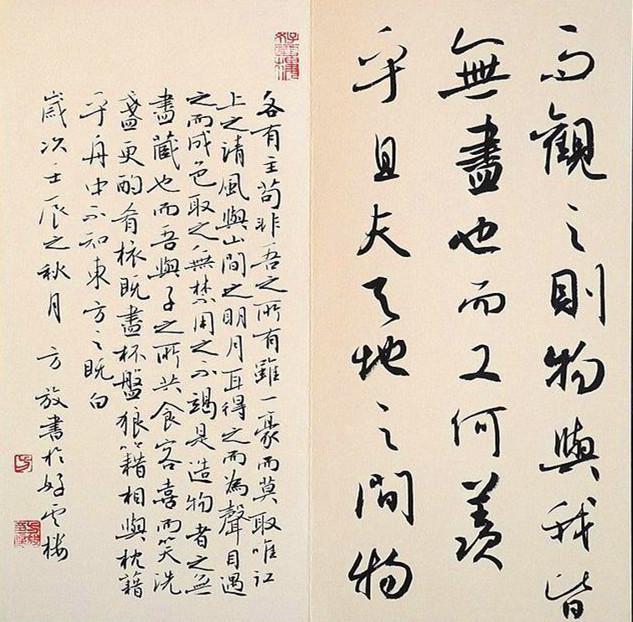 而觀之則物與我皆
無盡也而又何羨
乎且夫天地之間物
各有主苟非吾之所有雖一豪而莫取唯江
上之清風與山間之明月耳得之而為聲目遇
之而成色取之無禁用之不竭是造物者之無
盡藏也而吾與子之所共食客喜而笑洗
盞更酌肴核既盡杯盤狼籍相與枕籍
乎舟中不知東方之既白
歲次壬辰之秋月 方放書於好云楼